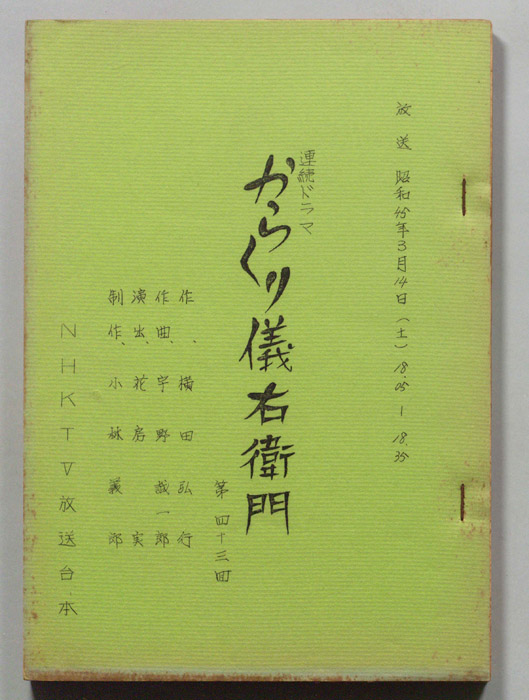 放送 昭和45年3月14日(土) 18.05―18.35
連続ドラマ
からくり儀右衛門
第四十三回
作、横田弘行
作曲、宇野誠一郎
演出、花房実
制作、小林義郎
NHKTV放送台本